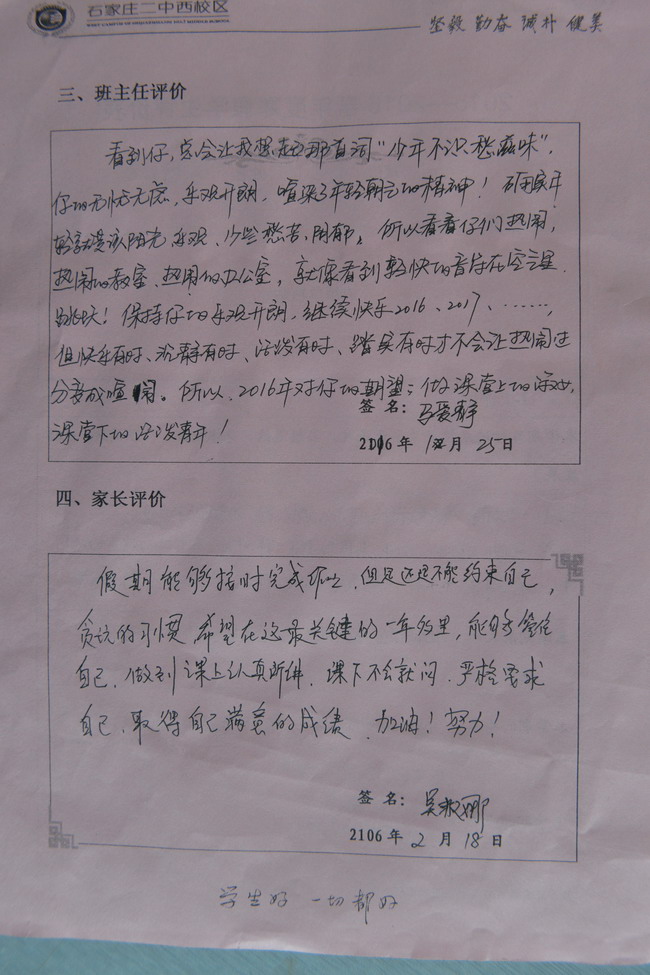 石家庄二中西校区
坚毅 勤奋 诚朴 健美
三、班主任评价
看到仔,总会让我想起那首词"少年不识愁滋味",
仔的无忧无虑,乐观开朗,喧染了年轻朝气的精神!
轻就应该阳光、乐观、少些愁苦、阴郁。所以看着仔们热闹,
热闹的教室、热闹的办公室,就像看到轻快的音片在空气里
跳跃!保持仔的乐观开朗,继续快乐2016、2017、……,
但快乐有时、沉静有时、活泼有时、踏实有时才不会让热闹过
分变成喧闹。所以,2016年对仔的期望:做课堂上的
课堂下的活泼青年!
签名:马爱静
2016年1月25日
四、家长评价
假期能够按时完成作业,但是还是不能约束自己,
贪玩的习惯,希望在这最关键的一年多里,能够管住
自己,做到课上认真听讲,课下不会就问,严格要求
自己,取得自己满意的成绩,加油!努力!
签名:吴淑娜
2106年2月18日
学生好 一切都好